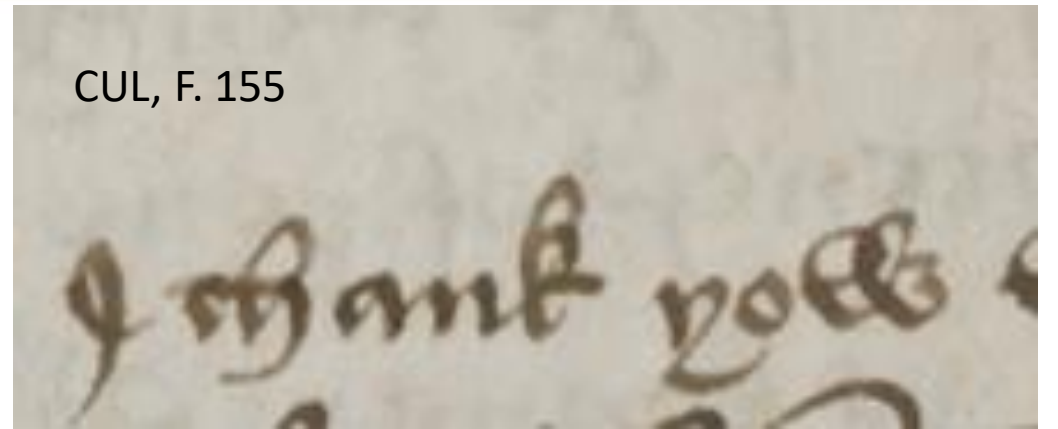 CUL, F. 155
I thank yow